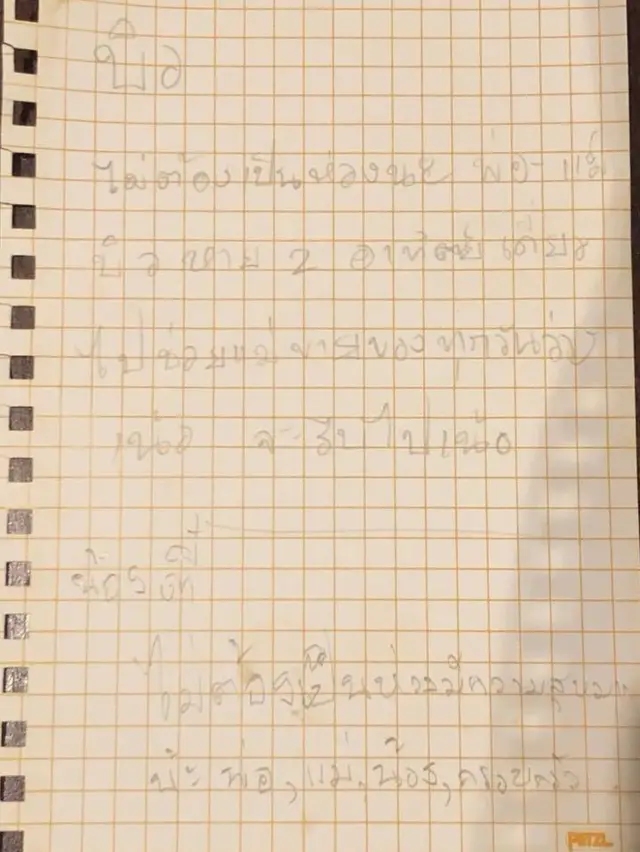 บิว
ไม่ต้องเป็นห่วงนะ พ่อ-แม่
บิว หาย 2 อาทิตย์เดี๋ยว
ไปช่วยแม่ขายของทุกวัน
เน้อ จะรีบไปเน้อ
น้อง
ไม่ต้องเป็นห่วงมีความสุข
น๊ะ พ่อ, แม่, น้อง, ครอบครัว
PETZL